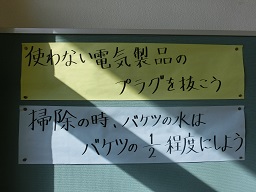 使わない電気製品の
プラグを抜こう
掃除の時、バケツの水は
バケツの1/2程度にしよう